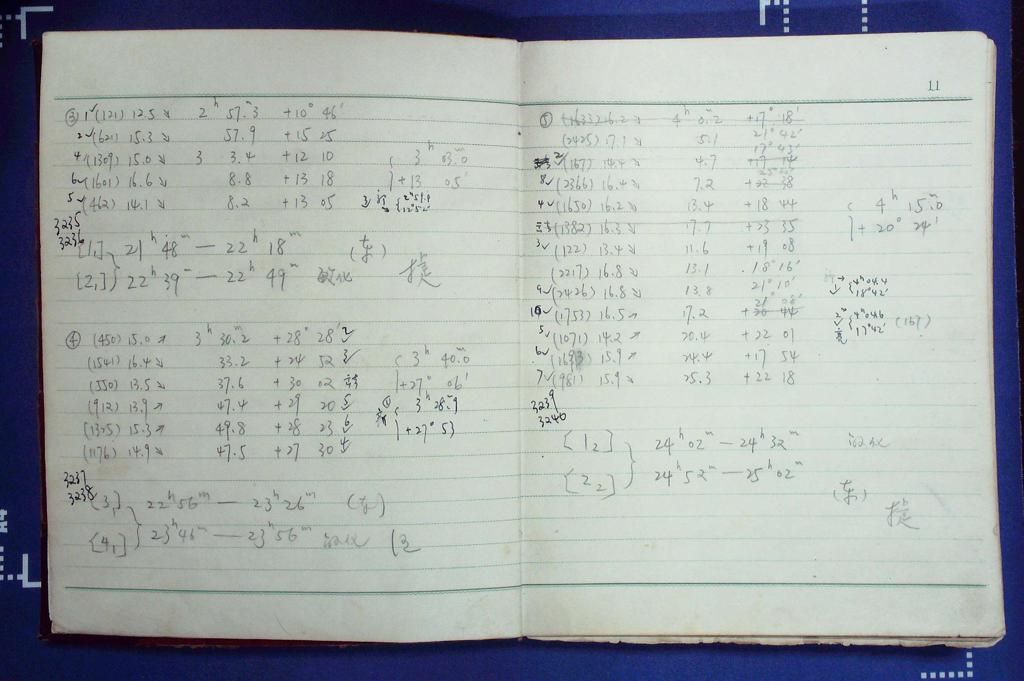 ③ 1✓(121) 12.5 ↘ 2ʰ 57ᵐ.3 +10° 46′
2✓(621) 15.3 ↘ 57.9 +15 25
4✓(1309) 15.0 ↘ 3 3.4 +12 10
6✓(1601) 16.6 ↘ 8.8 +13 18
5✓(462) 14.1 ↘ 8.2 +13 05
{ 3ʰ 03ᵐ.0
+13 05′
3235
3236
[1₁] 21ʰ 48ᵐ — 22ʰ 18ᵐ (东)
[2₁] 22ʰ 39ᵐ — 22ʰ 49ᵐ
④ (450) 15.0 ↗ 3ʰ 30ᵐ.2 +28° 28′ 2✓
(1541) 16.4 ↘ 33.2 +24 52 3✓
(550) 13.5 ↘ 37.6 +30 02
(912) 13.9 ↗ 47.4 +29 20 5✓
(1325) 15.3 ↗ 49.8 +28 23 6✓
(1176) 14.9 ↘ 47.5 +27 30 4✓
{ 3ʰ 40ᵐ.0
+27° 06′
① { 3ʰ 28ᵐ.9
+27° 53
3237
3238
[3₁] 22ʰ 56ᵐ — 23ʰ 26ᵐ (东)
[4₁] 23ʰ 46ᵐ — 23ʰ 56ᵐ
11
⑤ (1633) 16.2 ↘ 4ʰ 0ᵐ.2 +17° 18′
(2425) 17.1 ↘ 5.1 21° 42′
17° 43′
2✓(167) 14.4 ↘ 4.7 +17 14
8✓(2366) 16.4 ↘ 7.2 38
4✓(1650) 16.2 ↘ 13.4 +18 44
(1382) 16.3 ↘ 17.7 +23 35
3✓(122) 13.4 ↘ 11.6 +19 08
(2217) 16.8 ↘ 13.1 18° 16′
9✓(2426) 16.8 ↘ 13.8 21° 10′
21° 08′
10✓(1753) 16.5 ↗ 17.2 +20 44
5✓(1071) 14.2 ↗ 20.4 +22 01
6✓ 15.9 ↗ 24.4 +17 54
7✓(981) 15.9 ↘ 25.3 +22 18
{ 4ʰ 15ᵐ.0
+20° 24′
{ 4ʰ 04ᵐ.4
18° 42′
{ 4ʰ 04ᵐ.6
17° 42′ (167)
3239
3240
[1₂] 24ʰ 02ᵐ — 24ʰ 32ᵐ
[2₂] 24ʰ 52ᵐ — 25ʰ 02ᵐ
(东)